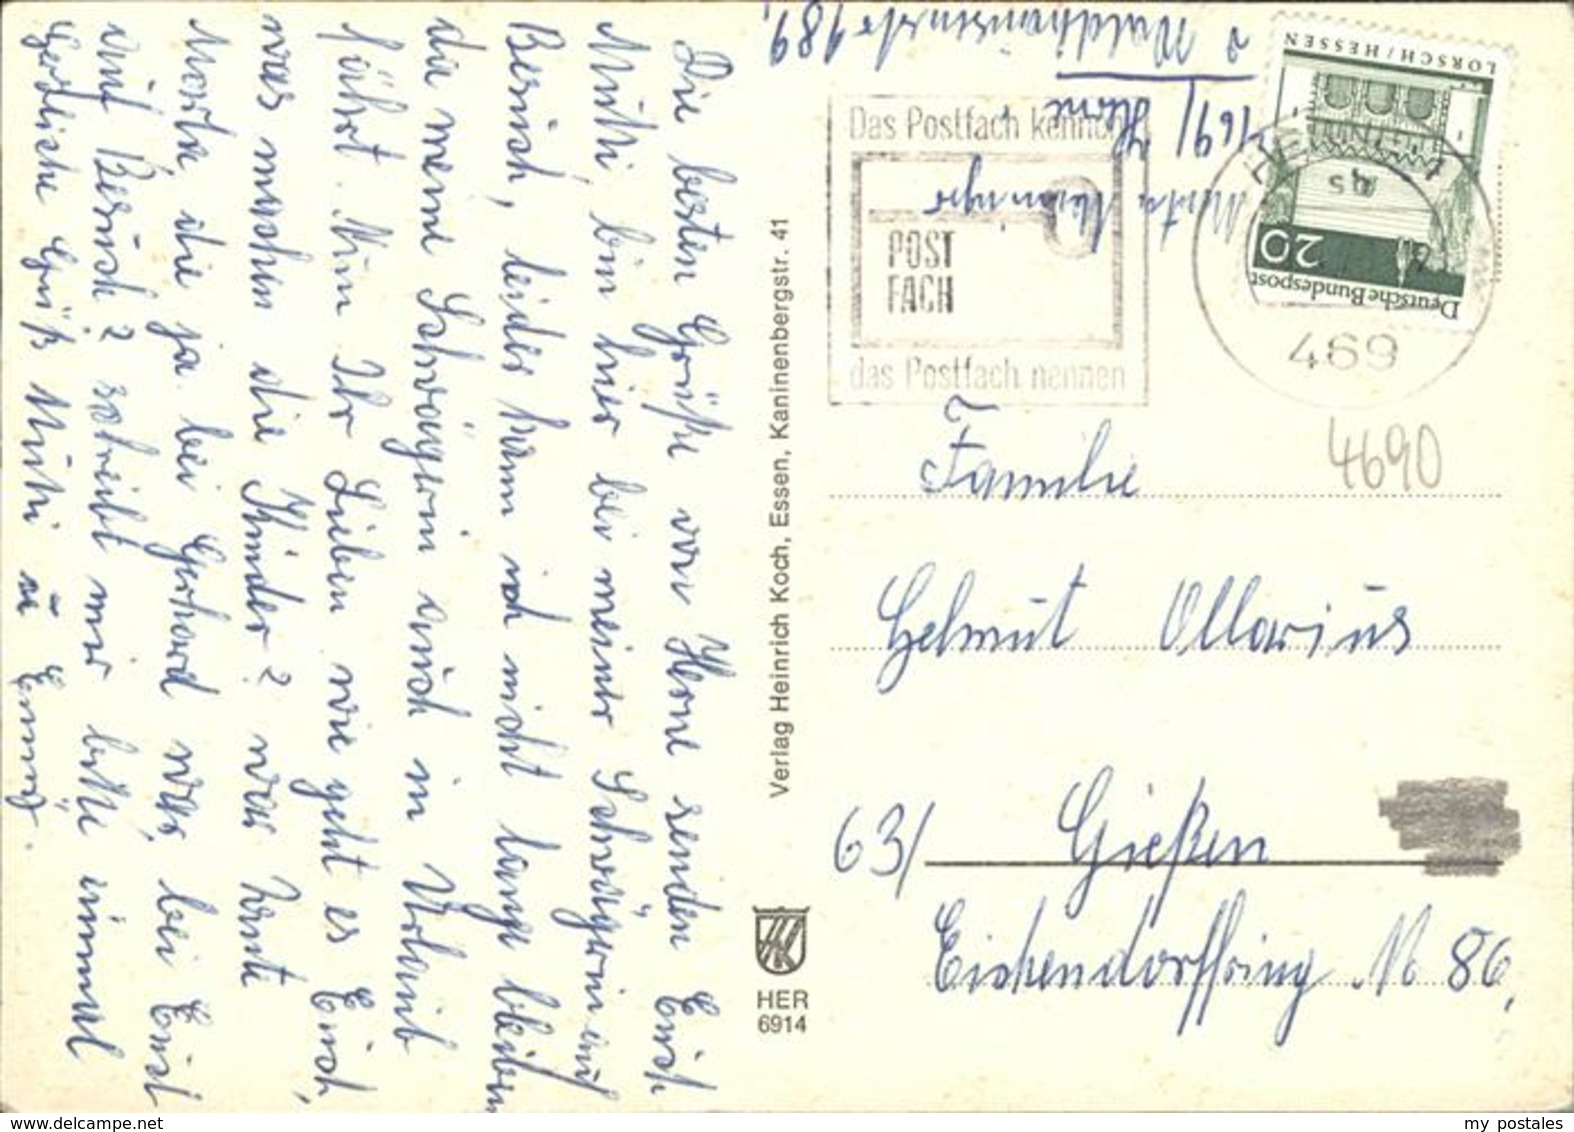 Die besten Grüße von Herne senden Euch
Mutti, bin hier bei meiner Schwägerin auf
Besuch, leider kann ich nicht lange bleiben
da meine Schwägerin auch in Urlaub
fährt. Nun Ihr Lieben wie geht es Euch,
was machen die Kinder? was
Marta, die ja bei Gerhard war, bei Euch
auf Besuch? schreibt mir bitte einmal
Herzliche Grüß Mutti u
Verlag Heinrich Koch, Essen, Kaninenbergstr. 41
HER
6914
469/ Herne
189
Das Postfach kennen
POST
FACH
das Postfach nennen
LORSCH/HESSEN
20
Deutsche Bundespost
469
4690
Familie
Helmut Ollarius
63/ Gießen
Eichendorffring N 86,
my postales
www.delcampe.net